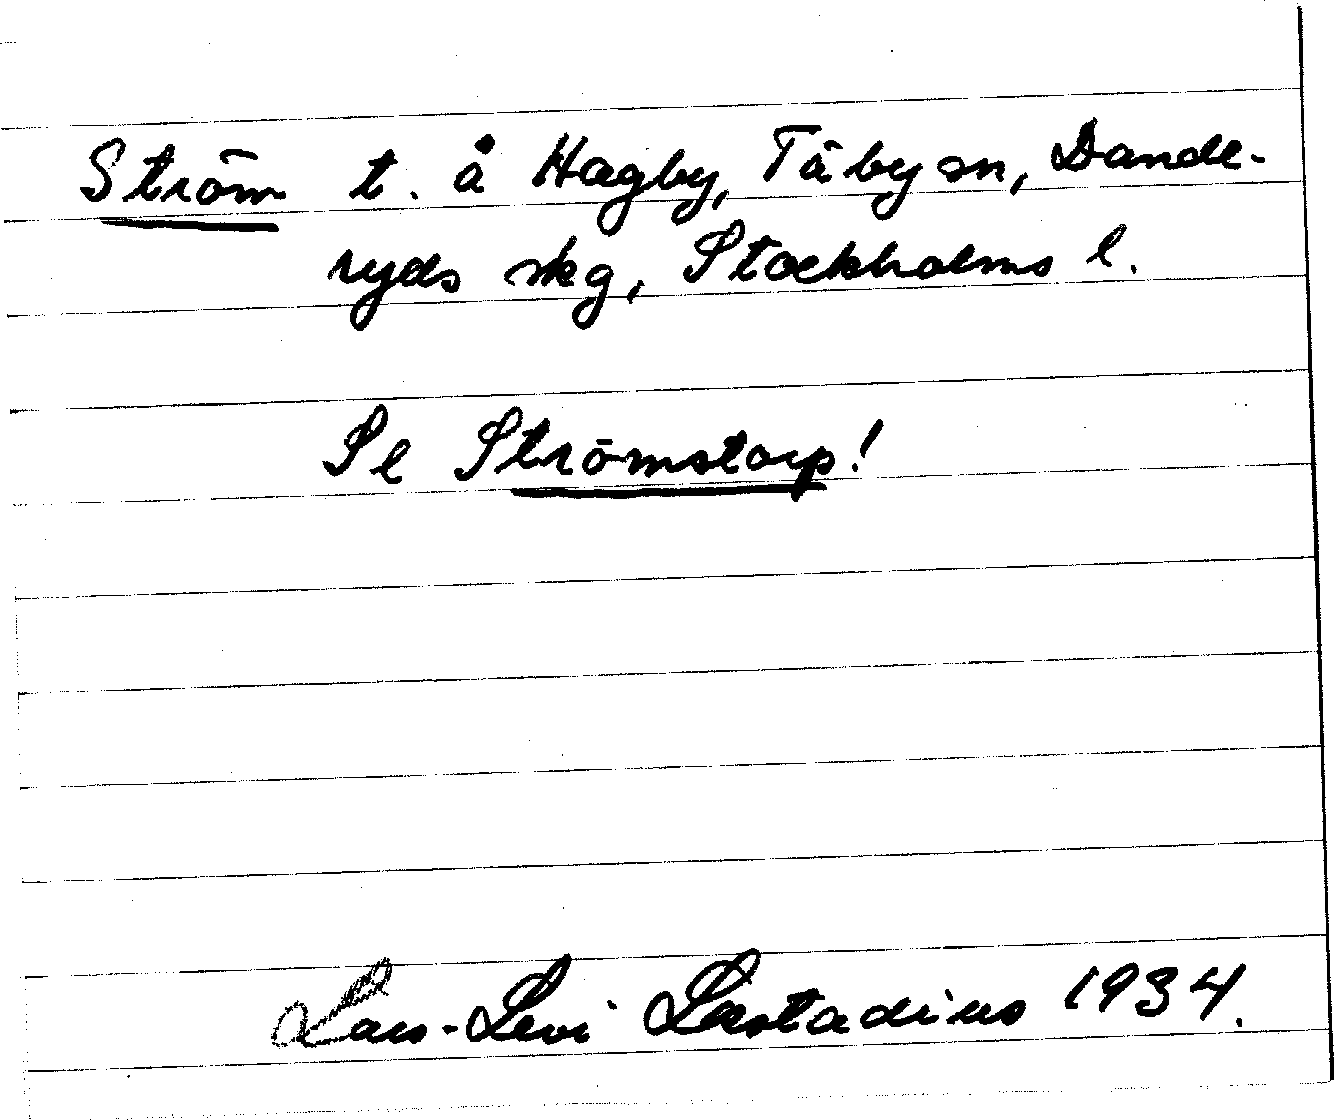 Ström t. å Hagby, Täby sn, Dande-
ryds skg, Stockholms l.
Se Strömstorp!
Lars-Levi Læstadius 1934.